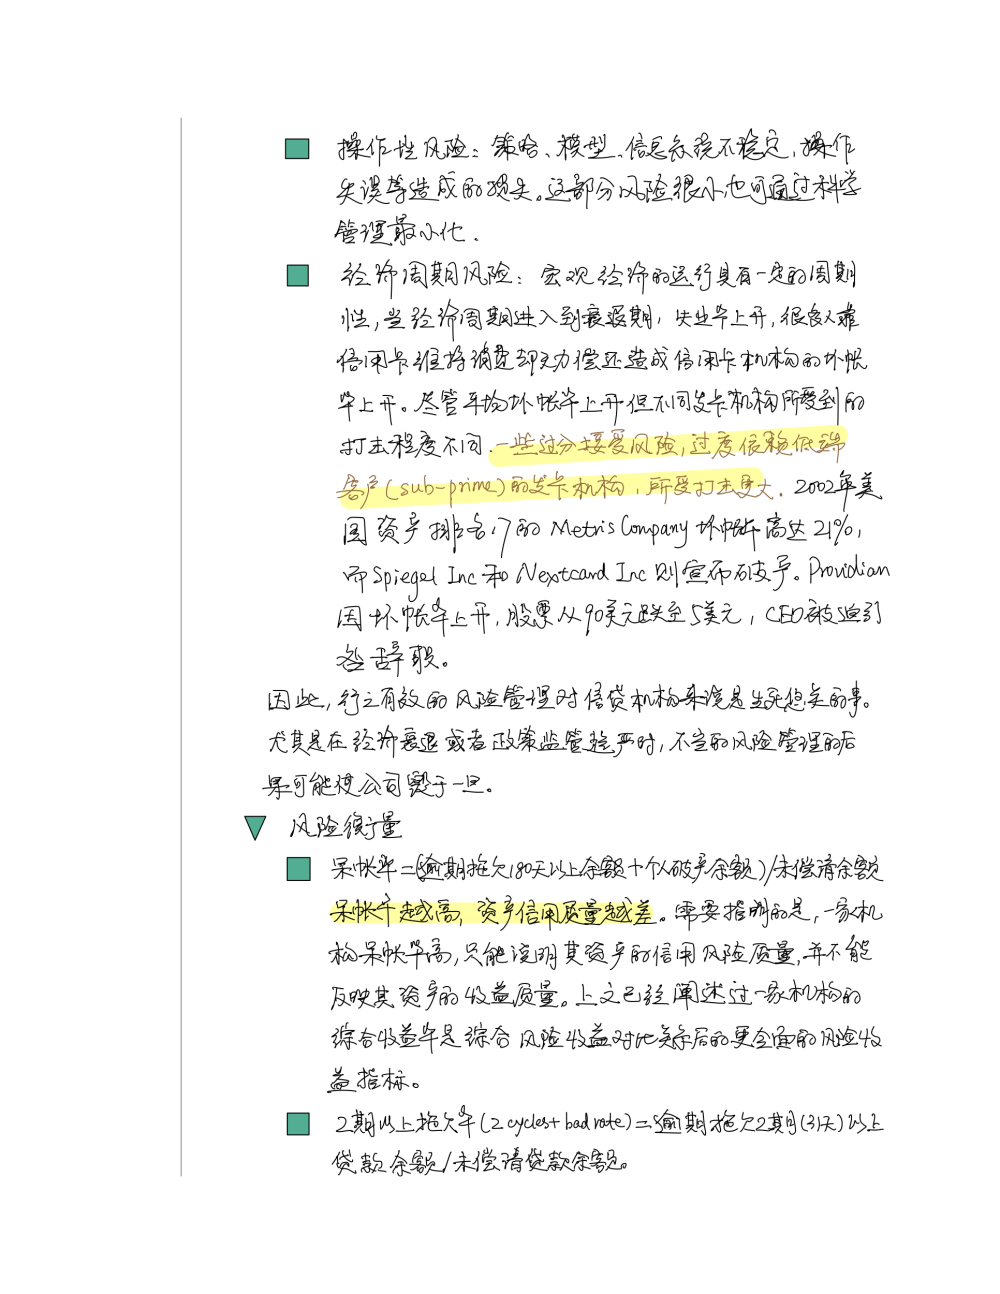 操作性风险：策略、模型、信息系统不稳定，操作
失误等造成的损失。这部分风险很小也可通过科学
管理最小化.
经济周期风险：宏观经济的运行具有一定的周期
性，当经济周期进入到衰退期，失业率上升，很多人靠
信用卡维持消费却无力偿还造成信用卡机构的坏帐
率上升。尽管平均坏帐率上升但不同发卡机构所受到的
打击程度不同.一些过分接受风险，过度依赖低端
客户(sub-prime)的发卡机构，所受打击更大. 2002年美
国资产排名17的Metris Company坏帐率高达21%，
而Spiegel Inc和Nextcard Inc则宣布破产。Providian
因坏帐率上升，股票从90美元跌至5美元，CEO被迫引
咎辞职。
因此，行之有效的风险管理对信贷机构来说是生死悠关的事。
尤其是在经济衰退或者政策监管趋严时，不当的风险管理的后
果可能使公司毁于一旦。
风险衡量
呆帐率=(逾期拖欠180天以上余额+个人破产余额)/未偿清余额
呆帐率越高，资产信用质量越差。需要指明的是，一家机
构呆帐率高，只能说明其资产的信用风险质量，并不能
反映其资产的收益质量。上文已经阐述过一家机构的
综合收益率是综合风险收益对比关系后的更全面的风险收
益指标。
2期以上拖欠率(2 cycles+ bad rate)=逾期拖欠2期(31天)以上
贷款余额/未偿清贷款余额。